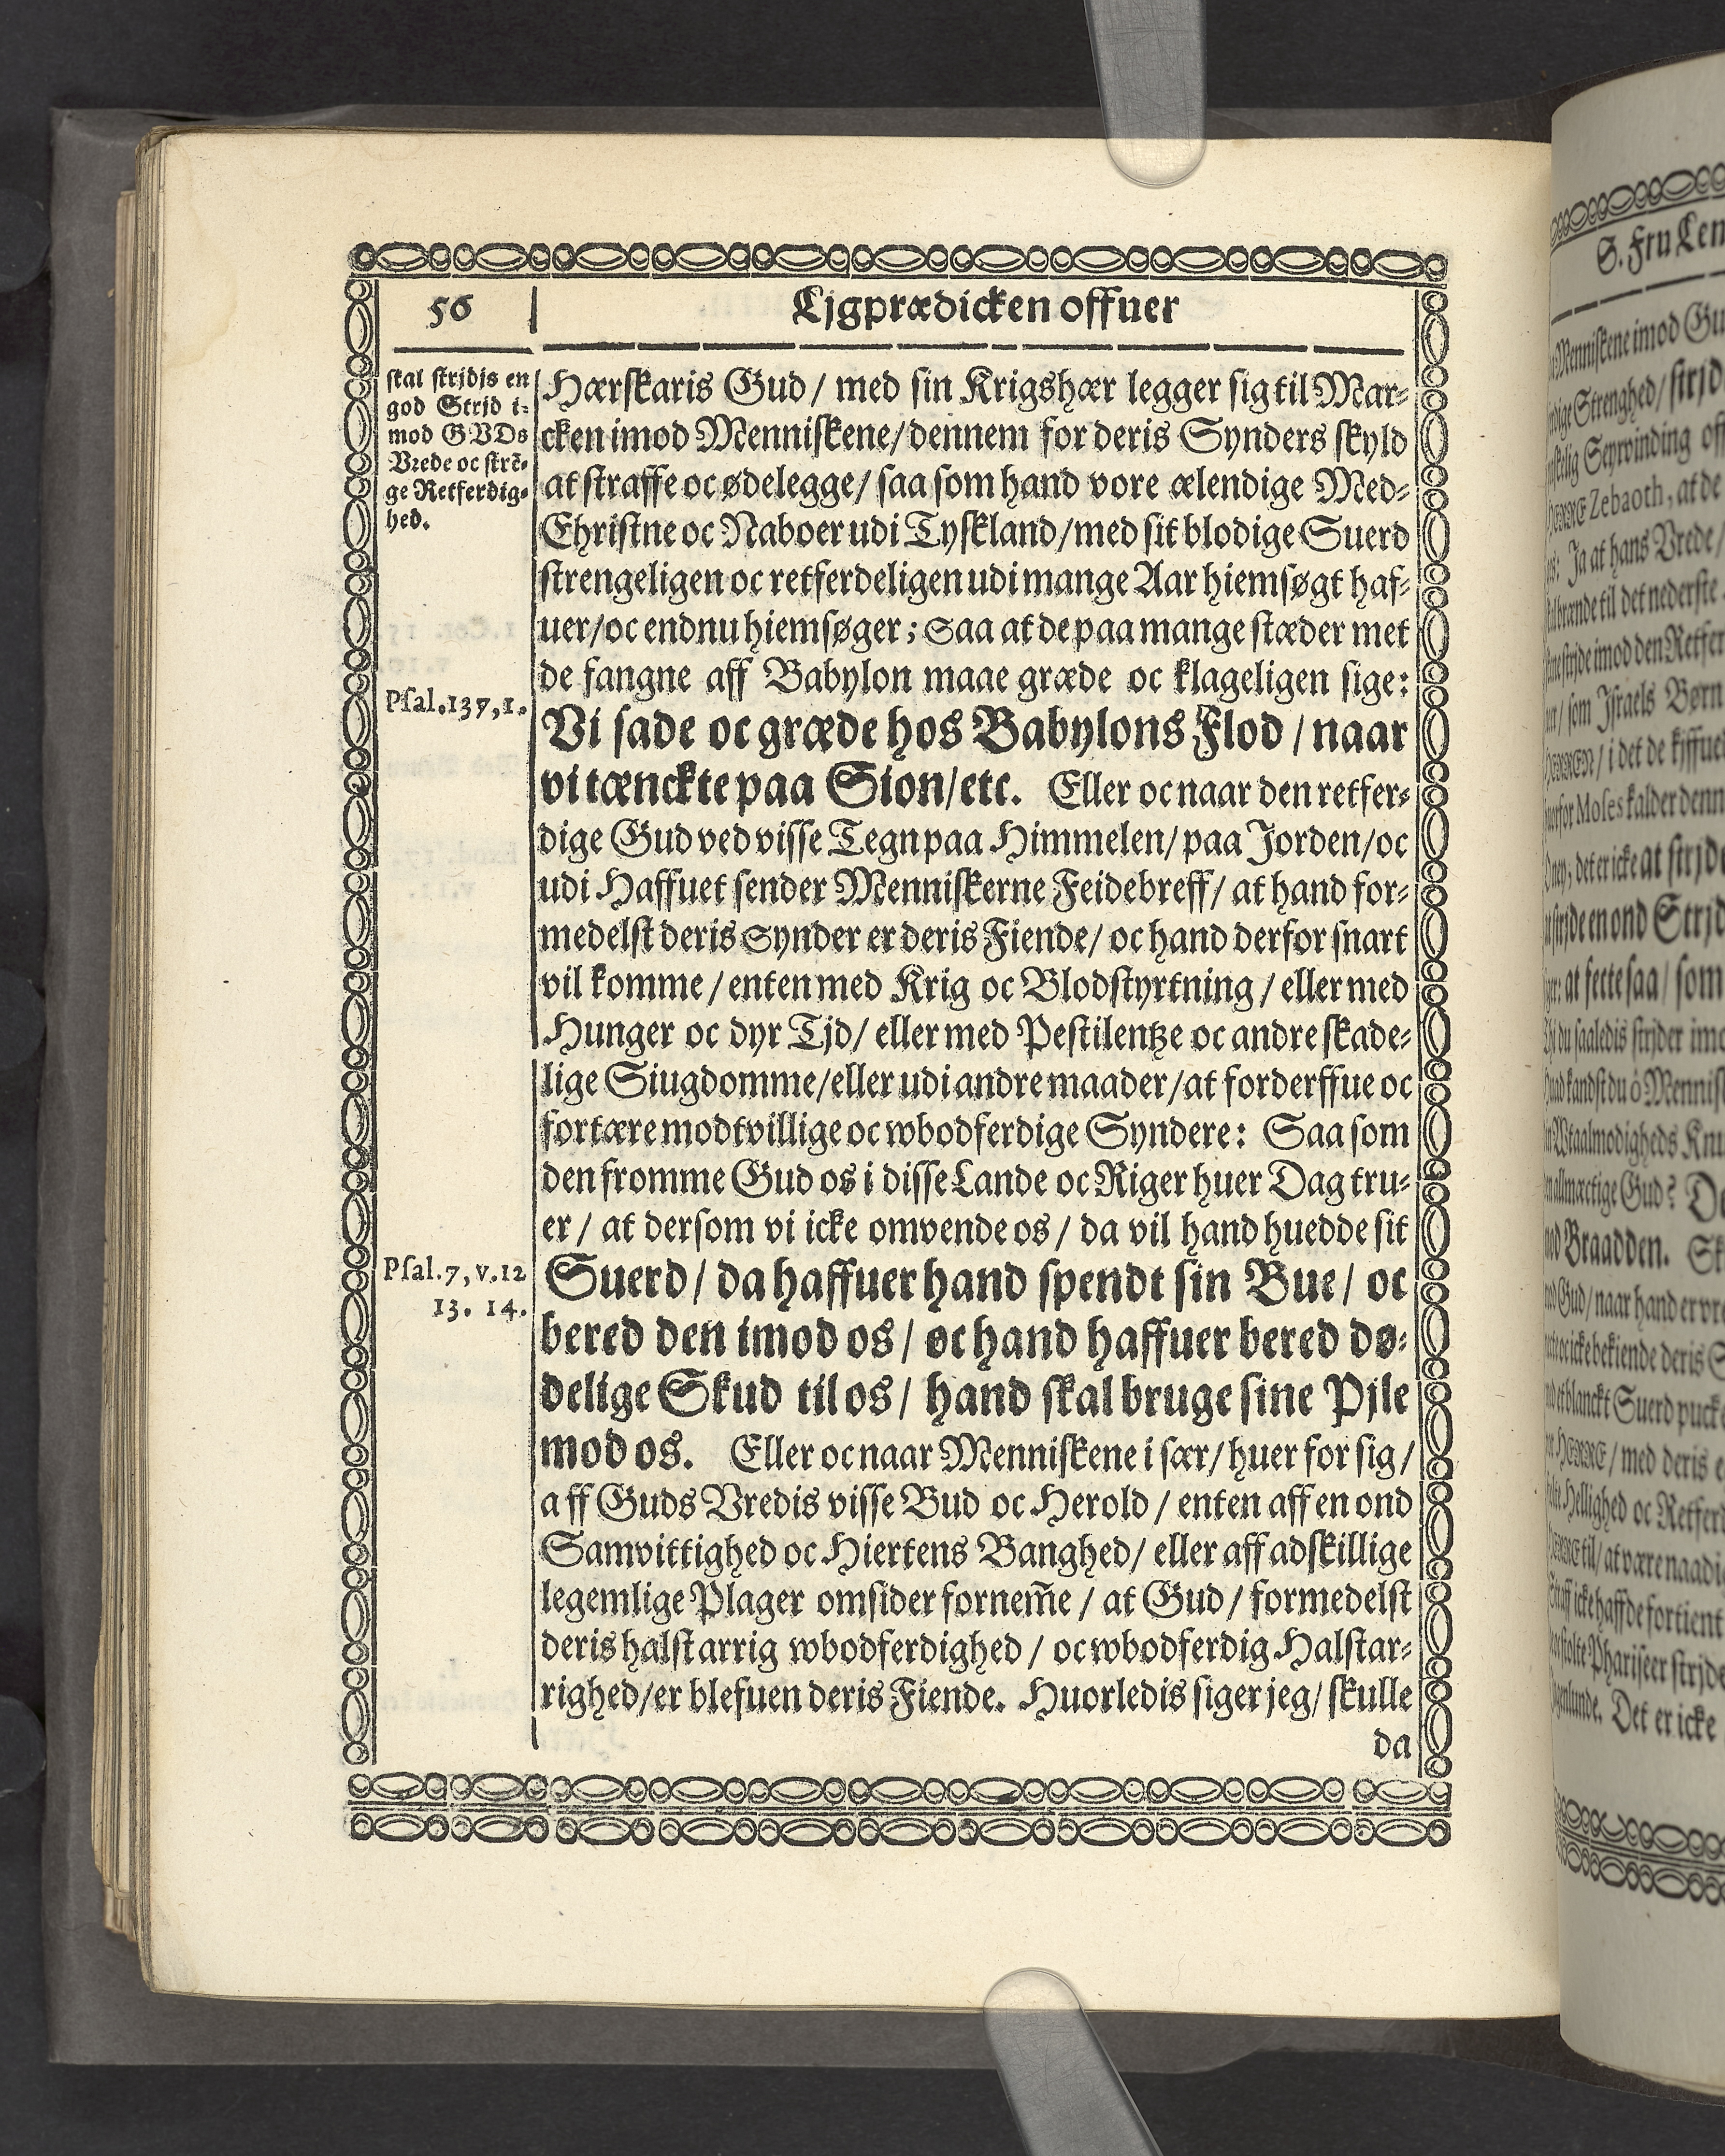 56
Ljgprædicken offuer
skal strjdis en
god Strjd i-
mod GVDs
Vrede oc strē-
ge Retferdig-
hed.
Psal.137,1.
Psal.7, v.12
13. 14.
Hærskaris Gud / med sin Krigshær legger sig til Mar-
cken imod Menniskene/ dennem for deris Synders skyld
at straffe oc ødelegge/ saa som hand vore ælendige Med-
Christne oc Naboer udi Tyskland/med sit blodige Suerd
strengeligen oc retferdeligen udi mange Aar hiemsøgt haf-
uer/oc endnu hiemsøger; Saa at de paa mange stæder met
de fangne aff Babylon maae græde oc klageligen sige:
Vi sade oc græde hos Babylons Flod / naar
vi tænckte paa Sion/etc. Eller oc naar den retfer-
dige Gud ved visse Tegn paa Himmelen/ paa Jorden/oc
udi Haffuet sender Menniskerne Feidebreff/ at hand for-
medelst deris Synder er deris Fiende/ oc hand derfor snart
vil komme / enten med Krig oc Blodstyrtning / eller med
Hunger oc dyr Tjd/ eller med Pestilentze oc andre skade-
lige Siugdomme/eller udi andre maader/at forderffue oc
fortære modtvillige oc wbodferdige Syndere: Saa som
den fromme Gud os i disse Lande oc Riger huer Dag tru-
er / at dersom vi icke omvende os / da vil hand huedde sit
Suerd/ da haffuer hand spendt sin Bue/ oc
bered den imod os / oc hand haffuer bered dø-
delige Skud til os/ hand skal bruge sine Pjle
mod os. Eller oc naar Menniskene i sær/ huer for sig /
aff Guds Vredis visse Bud oc Herold / enten aff en ond
Samvittighed oc Hiertens Banghed/ eller aff adskillige
legemlige Plager omsider fornem̄e / at Gud / formedelst
deris halstarrig wbodferdighed / oc wbodferdig Halstar-
righed/er blefuen deris Fiende. Huorledis siger jeg/ skulle
da